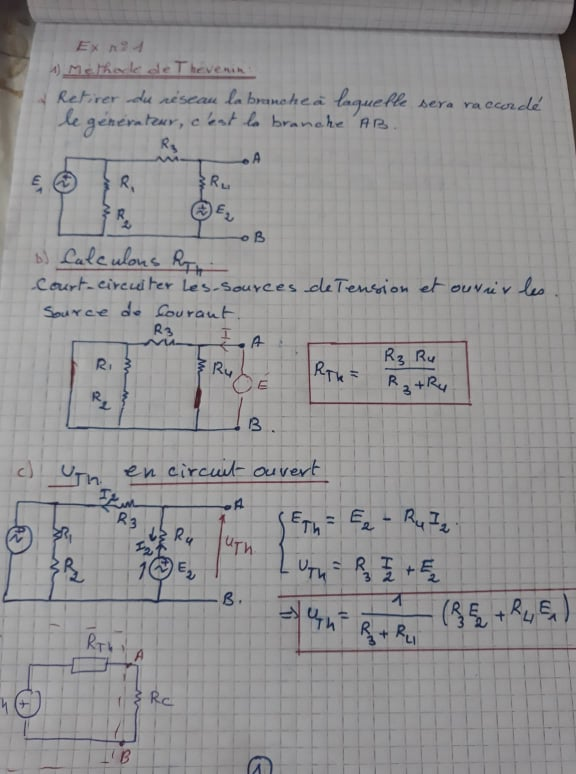 Ex n°1
1) Méthode de Thévenin:
Retirer du réseau la branche à laquelle sera raccordé
le générateur, c'est la branche AB.
R3
A
E1
R1
R4
R2
E2
B
b) Calculons RTh.
Court-circuiter Les sources de Tension et ouvrir les
source de Courant.
R3
I
A
R1
R4
E
R2
B
RTh = R3 R4 / R3 + R4
c) UTh en circuit ouvert
I2
R3
A
R1
I2
R4
UTh
R2
E2
B.
ETh = E2 - R4 I2.
UTh = R3 I2 + E2
=> UTh = 1 / R3 + R4 (R3 E2 + R4 E1)
RTh
A
Rc
B
1